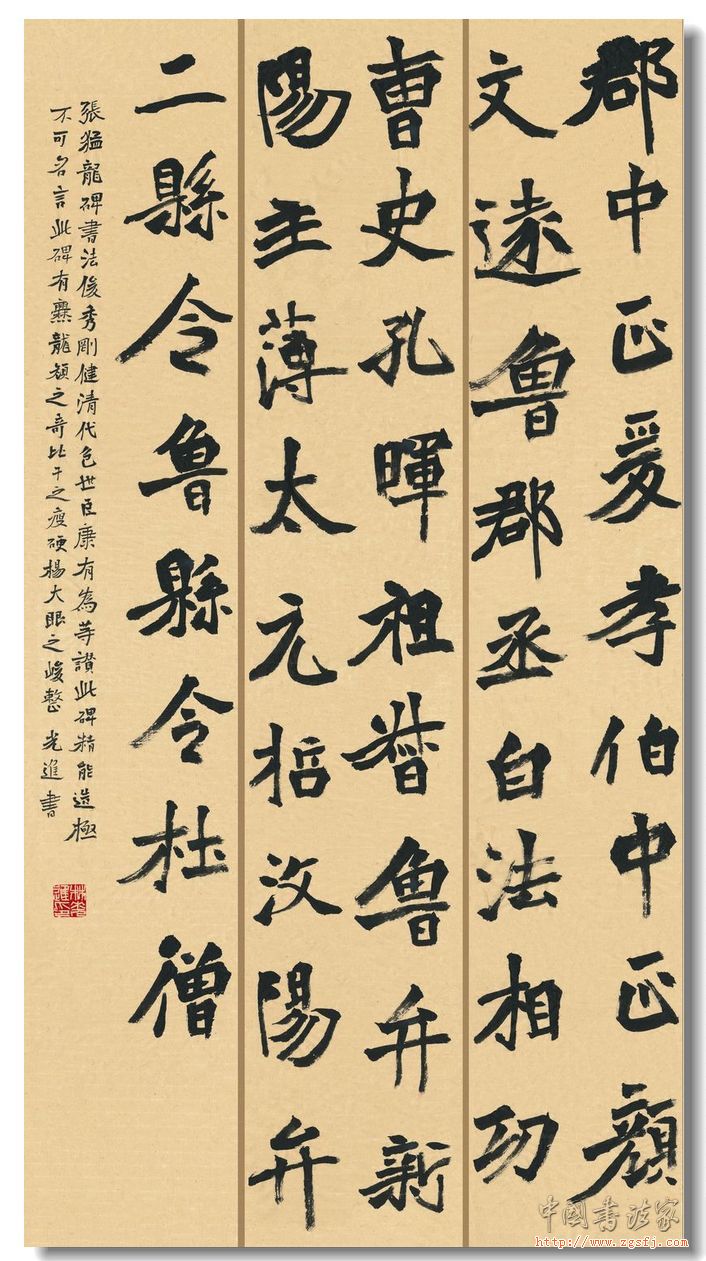 郡中正爰孝伯中正顏
文遠魯郡丞白法相功
曹史孔暉祖督魯弁新
陽主薄太元哲汶陽弁
二縣令魯縣令杜僧
張猛龍碑書法俊秀剛健清代包世臣康有為等讚此碑精能造極
不可名言此碑有爨龍顏之奇比干之瘦硬楊大眼之峻整 光進書
中國书法家
http://www.zgsfj.com